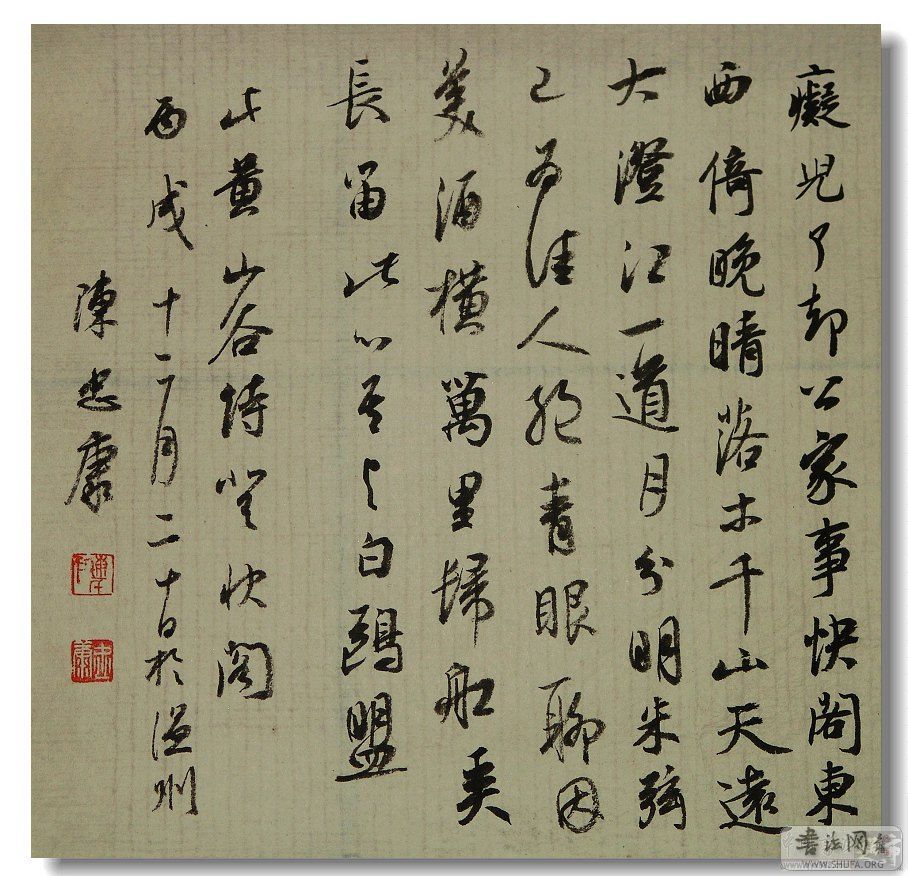 癡兒了却公家事快閣東
西倚晚晴落木千山天遠
大澄江一道月分明朱弦
已為佳人絶青眼聊因
美酒橫萬里歸船弄
長笛此心吾与白鷗盟
此黄山谷詩登快閣
丙戌十二月二十日於温州
陳忠康
陳印
忠康
書法网
WWW.SHUFA.ORG